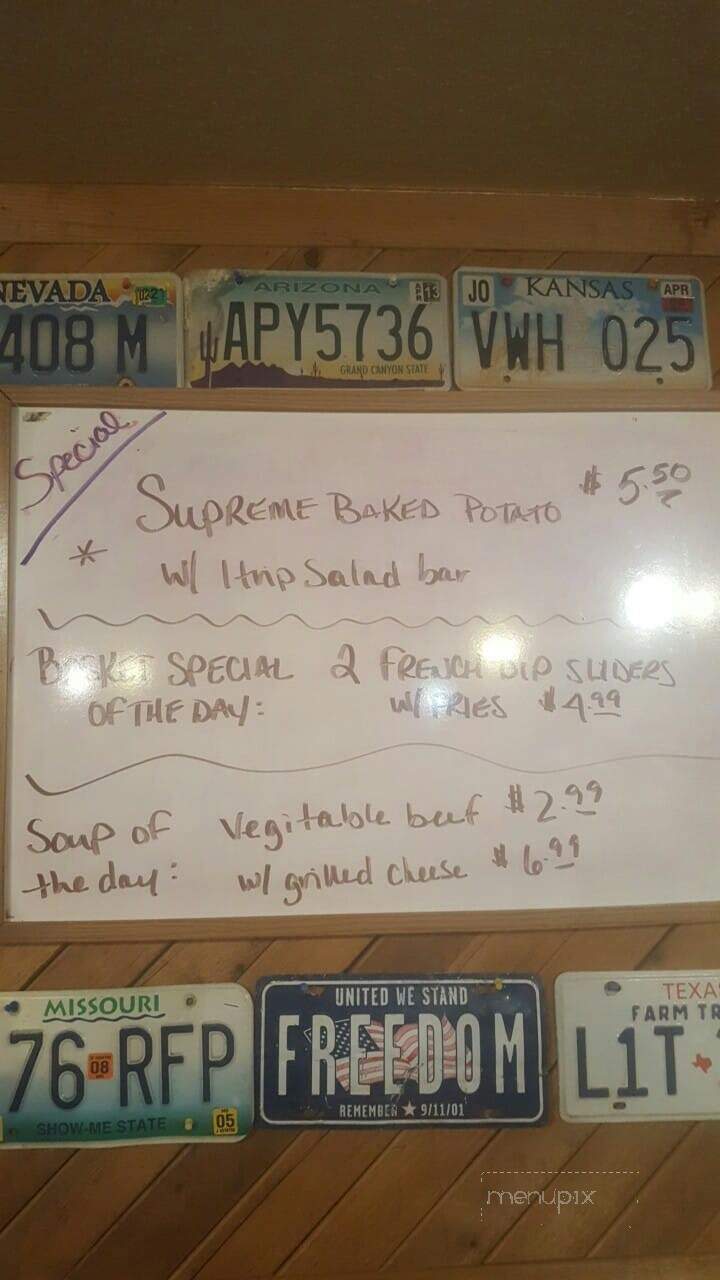 NEVADA
02 21
408 M
ARIZONA
APR 13
APY5736
GRAND CANYON STATE
JO KANSAS APR
VWH 025
Special
SUPREME BAKED POTATO $5.50
* w/ 1 trip Salad bar
BASKET SPECIAL 2 FRENCH DIP SLIDERS
OF THE DAY: W/ FRIES $4.99
Soup of Vegitable beef $2.99
the day: w/ grilled cheese $6.99
MISSOURI
76 08 RFP
SHOW-ME STATE 05
UNITED WE STAND
FREEDOM
REMEMBER ★ 9/11/01
TEXAS
FARM TR
L1T
menupix